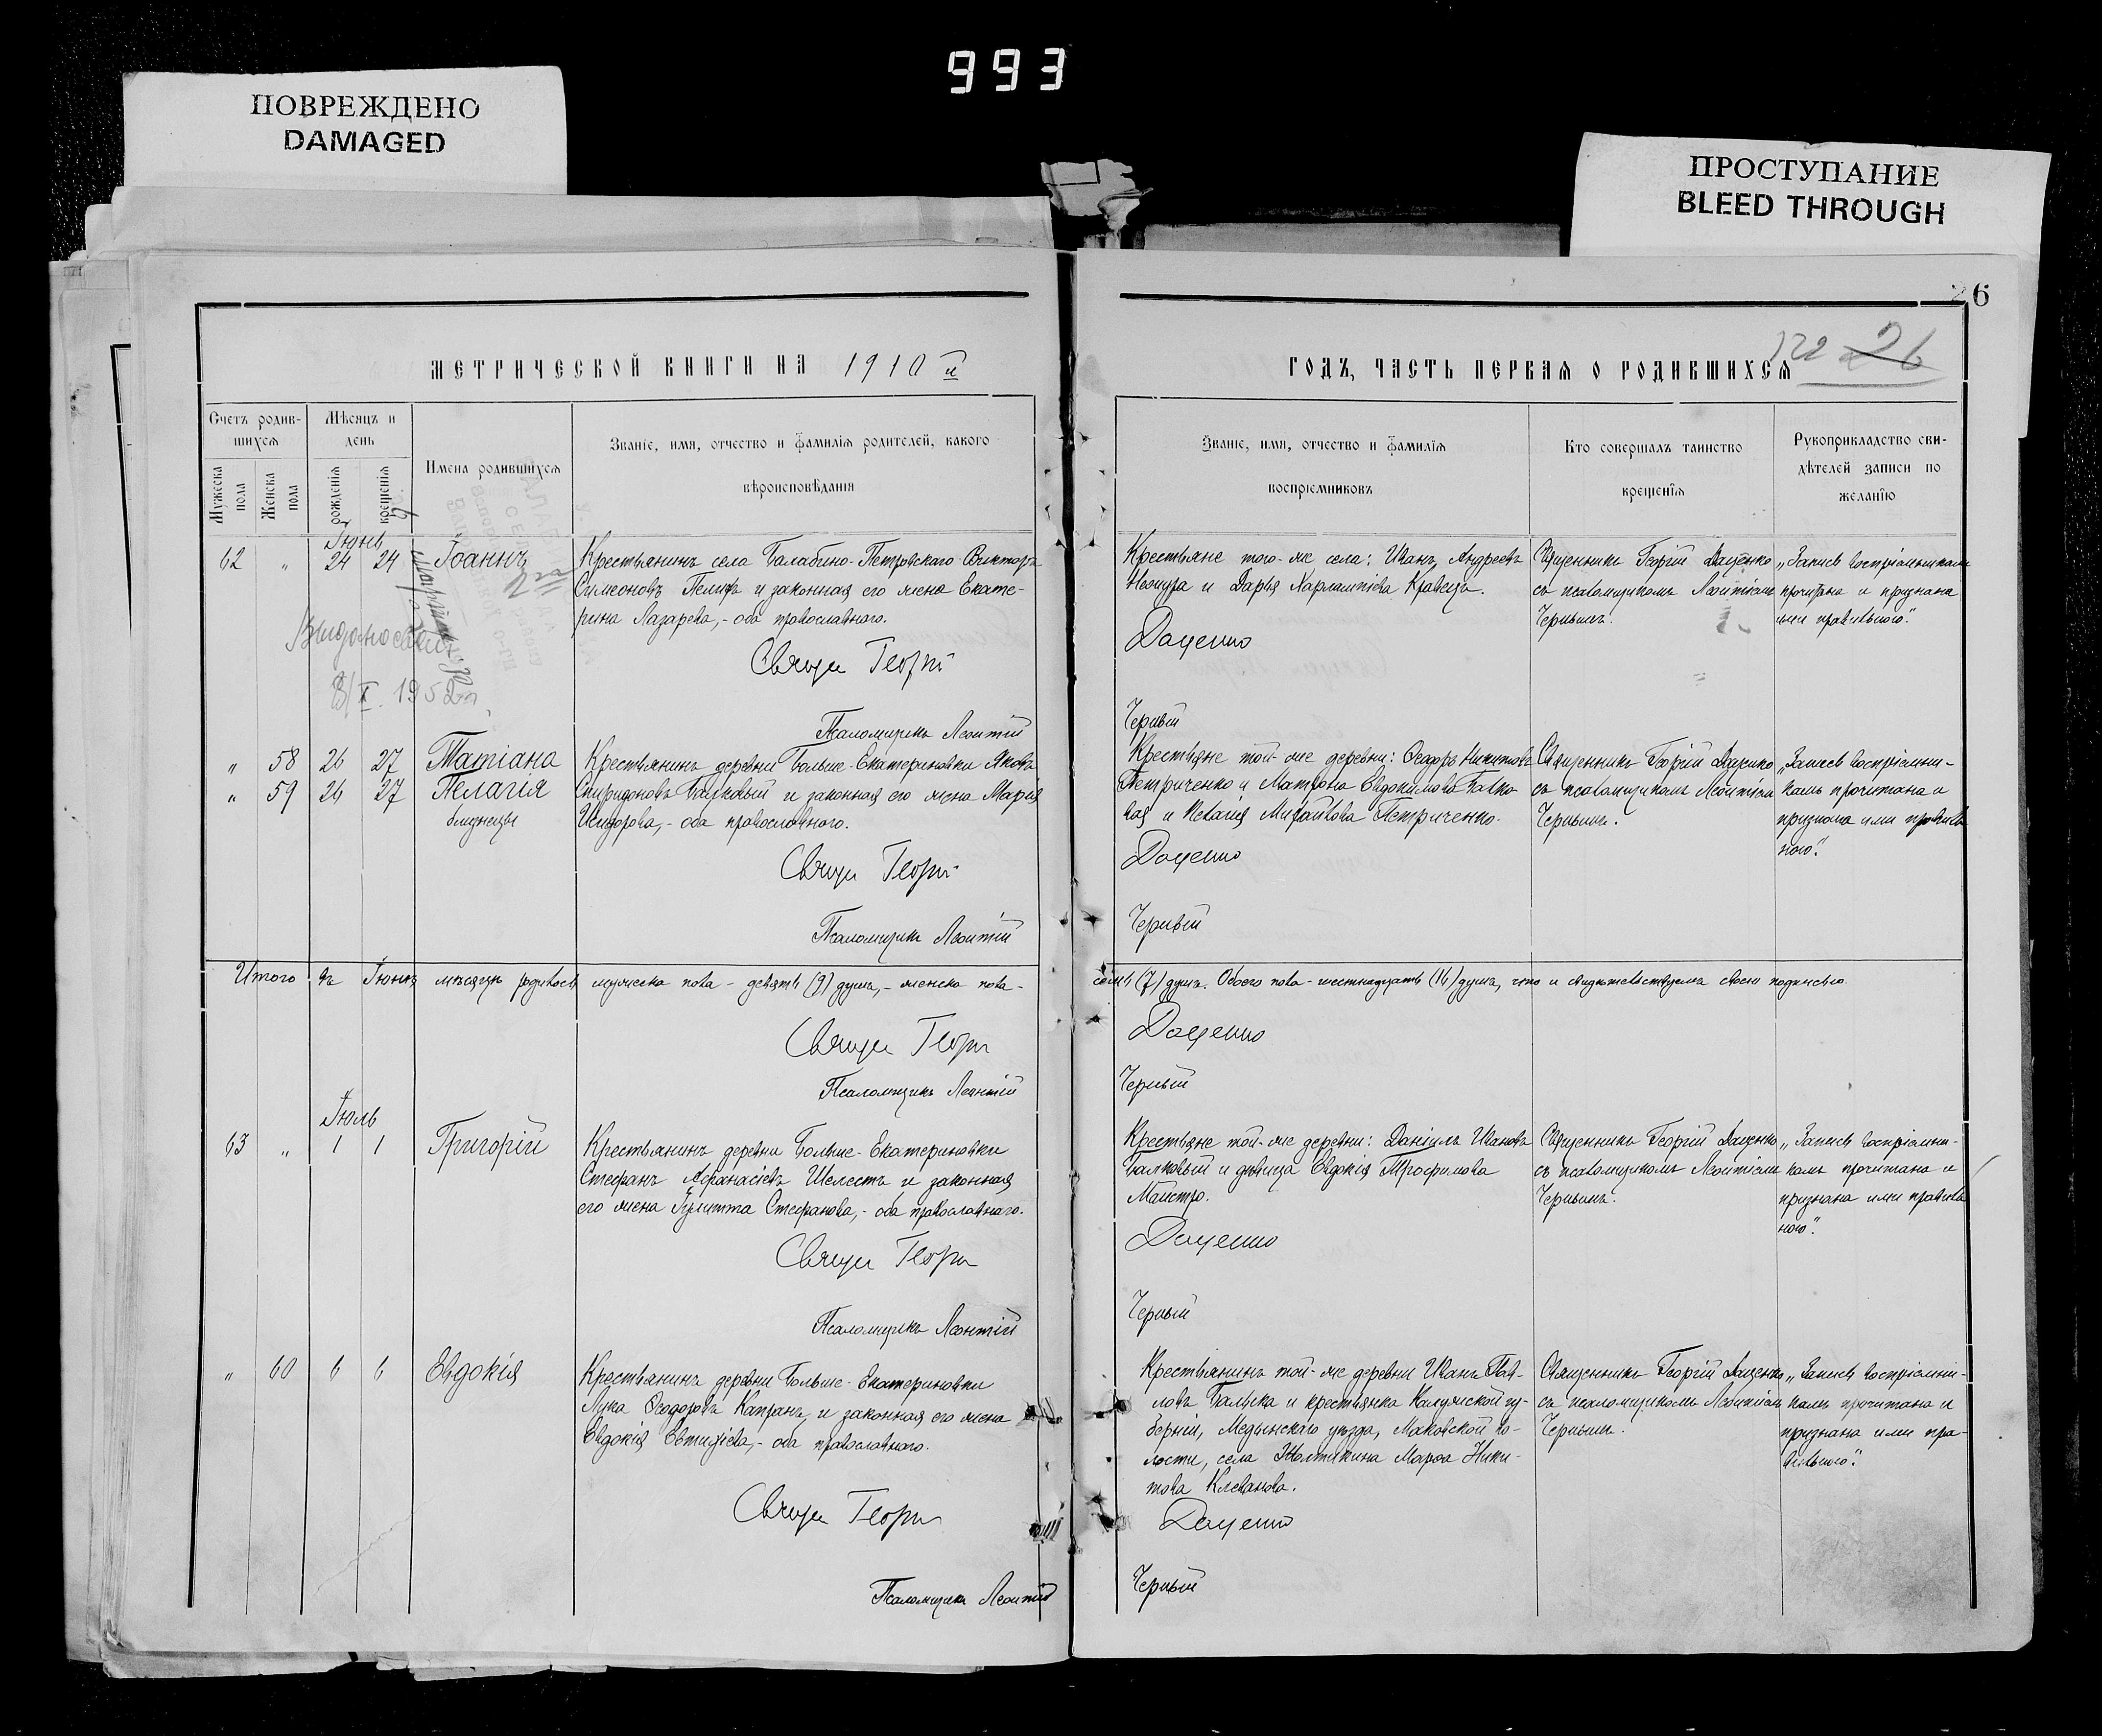 993
ПОВРЕЖДЕНО
DAMAGED
ПРОСТУПАНИЕ
BLEED THROUGH
26
122 26
МЕТРИЧЕСКОЙ КНИГИ НА 1910 й
ГОДЪ, ЧАСТЬ ПЕРВАЯ О РОДИВШИХСЯ
Счетъ родив-
шихся
Мѣсяцъ и
день
Мужеска
пола
Женска
пола
рожденія
крещенія
Имена родившихся
Званіе, имя, отчество и фамилія родителей, какого
вѣроисповѣданія
Званіе, имя, отчество и фамилія
воспріемниковъ
Кто совершалъ таинство
крещенія
Рукоприкладство сви-
дѣтелей записи по
желанію
Іюнь
62 " 24 24 Іоаннъ
Крестьянинъ села Балабино-Петровскаго Викторъ
Симеоновъ и законная его жена Екате-
рина Лазарева,- оба православнаго.
Свящ Георгій
Псаломщикъ Леонтій
8/X 1952 г.
Крестьяне того-же села: Иванъ Андреевъ
и Дарья Харлампіева Кравецъ.
Даценко
Черный
Священникъ Георгій Даценко
съ псаломщикомъ Леонтіемъ
Чернымъ.
„Запись воспріемникамъ
прочитана и признана
ими правильною".
" 58 26 27 Татіана
" 59 26 27 Пелагія
близнецы
Крестьянинъ деревни Больше-Екатериновки Яковъ
Спиридоновъ и законная его жена Марія
Исидорова,- оба православнаго.
Свящ Георгій
Псаломщикъ Леонтій
Крестьяне той-же деревни: Ѳеодоръ Никитовъ
Петриченко и Матрона Евдокимова Балко-
вая и Пелагія Михайлова Петриченко.
Даценко
Черный
Священникъ Георгій Даценко
съ псаломщикомъ Леонтіемъ
Чернымъ.
„Запись воспріемни-
камъ прочитана и
признана ими правиль-
ною".
Итого въ Іюнѣ мѣсяцѣ родилось мужеска пола - девять (9) душъ,- женска пола -
семь (7) душъ. Обоего пола - шестнадцать (16) душъ, что и свидѣтельствуемъ своею подписью.
Свящ Георгій
Даценко
Псаломщикъ Леонтій
Черный
Іюль
63 " 1 1 Григорій
Крестьянинъ деревни Больше-Екатериновки
Стефанъ Аѳанасіевъ Шелестъ и законная
его жена Іулитта Стефанова,- оба православнаго.
Свящ Георгій
Псаломщикъ Леонтій
Крестьяне той-же деревни: Даніилъ Ивановъ
Балковый и дѣвица Евдокія Трофимова
Майстро.
Даценко
Черный
Священникъ Георгій Даценко
съ псаломщикомъ Леонтіемъ
Чернымъ.
„Запись воспріемни-
камъ прочитана и
признана ими правиль-
ною".
" 60 6 6 Евдокія
Крестьянинъ деревни Больше-Екатериновки
Лука Ѳеодоровъ Капранъ и законная его жена
Евдокія Евтихіева,- оба православнаго.
Свящ Георгій
Псаломщикъ Леонтій
Крестьянинъ той-же деревни Иванъ Пав-
ловъ и крестьянка Калужской гу-
берніи, Медынскаго уѣзда, Маковской во-
лости, села Желтыкина Марѳа Ники-
това Клеванова.
Даценко
Черный
Священникъ Георгій Даценко
съ псаломщикомъ Леонтіемъ
Чернымъ.
„Запись воспріемни-
камъ прочитана и
признана ими пра-
вильною".